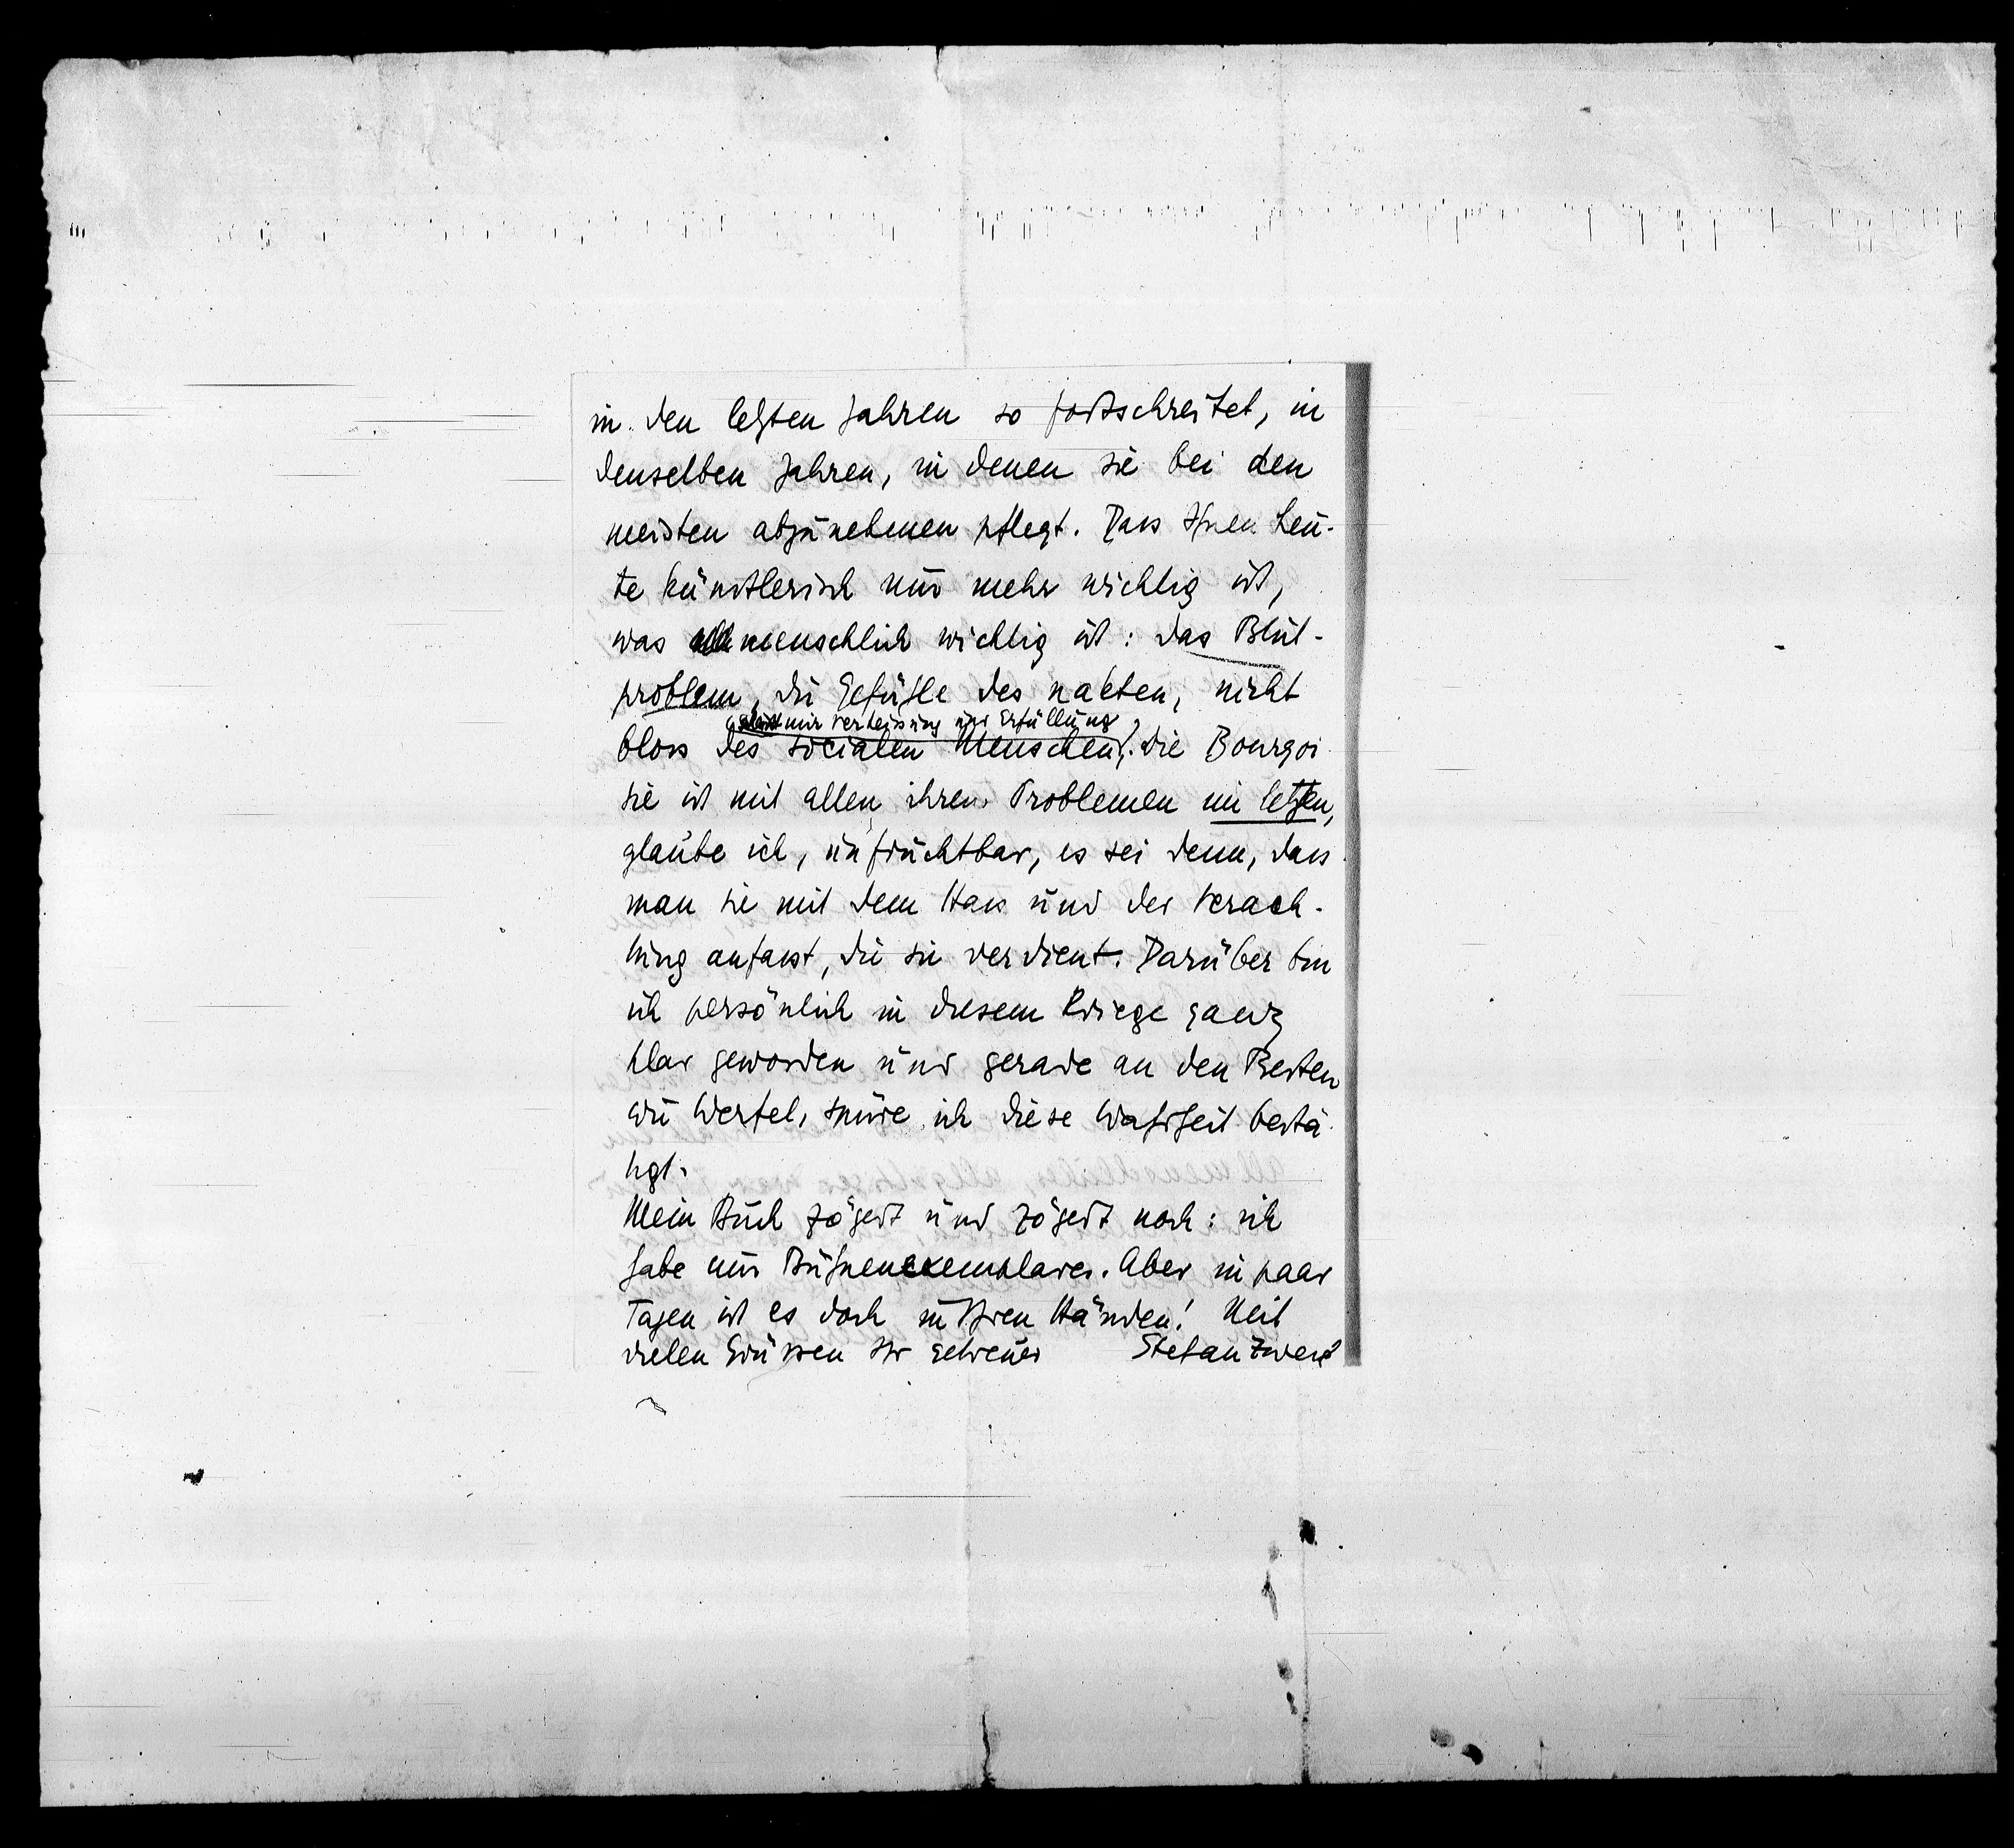 in den letzten Jahren so fortschreitet, in
denselben Jahren, in denen sie bei den
meisten abzunehmen pflegt. Dass Ihnen heu-
te künstlerisch nur mehr wichtig ist,
was allmenschlich wichtig ist: das Blut-
problem, die Gefühle des nakten, nicht
mir Verheissung und Erfüllung
bloss des socialen Menschen. Die Bourgoi
sie ist mit allen ihren Problemen im letzten,
glaube ich, unfruchtbar, es sei denn, dass
man sie mit dem Hass und der Verach-
tung anfasst, die sie verdient. Darüber bin
ich persönlich in diesem Kriege ganz
klar geworden und gerade an den Besten
wie Werfel, spüre ich diese Wahrheit bestä-
tigt.
Mein Buch zögert und zögert noch: ich
habe nur Bühnenexemplare. Aber in paar
Tagen ist es doch in Ihren Händen! Mit
vielen Grüssen Ihr getreuer Stefan Zweig